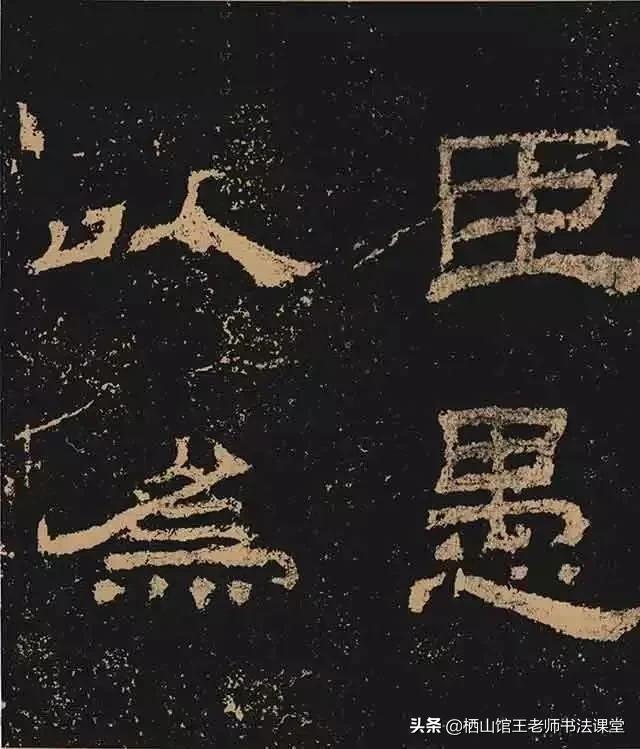 臣愚
以為
头条 @栖山馆王老师书法课堂